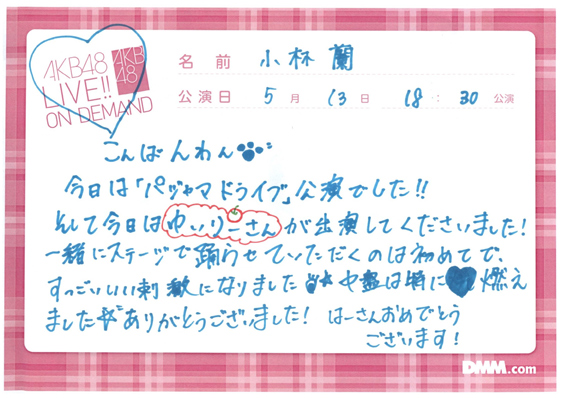 AKB48
LIVE!!
ON DEMAND
AKB
48
名前 小林 蘭
公演日 5月 13日 18:30公演
こんばんわん
今日は「パジャマドライブ」公演でした!!
そして今日はゆいりーさんが出演してくださいました!
一緒にステージで踊らせていただくのは初めてで、
すっごいいい刺激になりました 中盤は頃に 燃え
ました ありがとうございました! はーさんおめでとう
ございます!
DMM.com